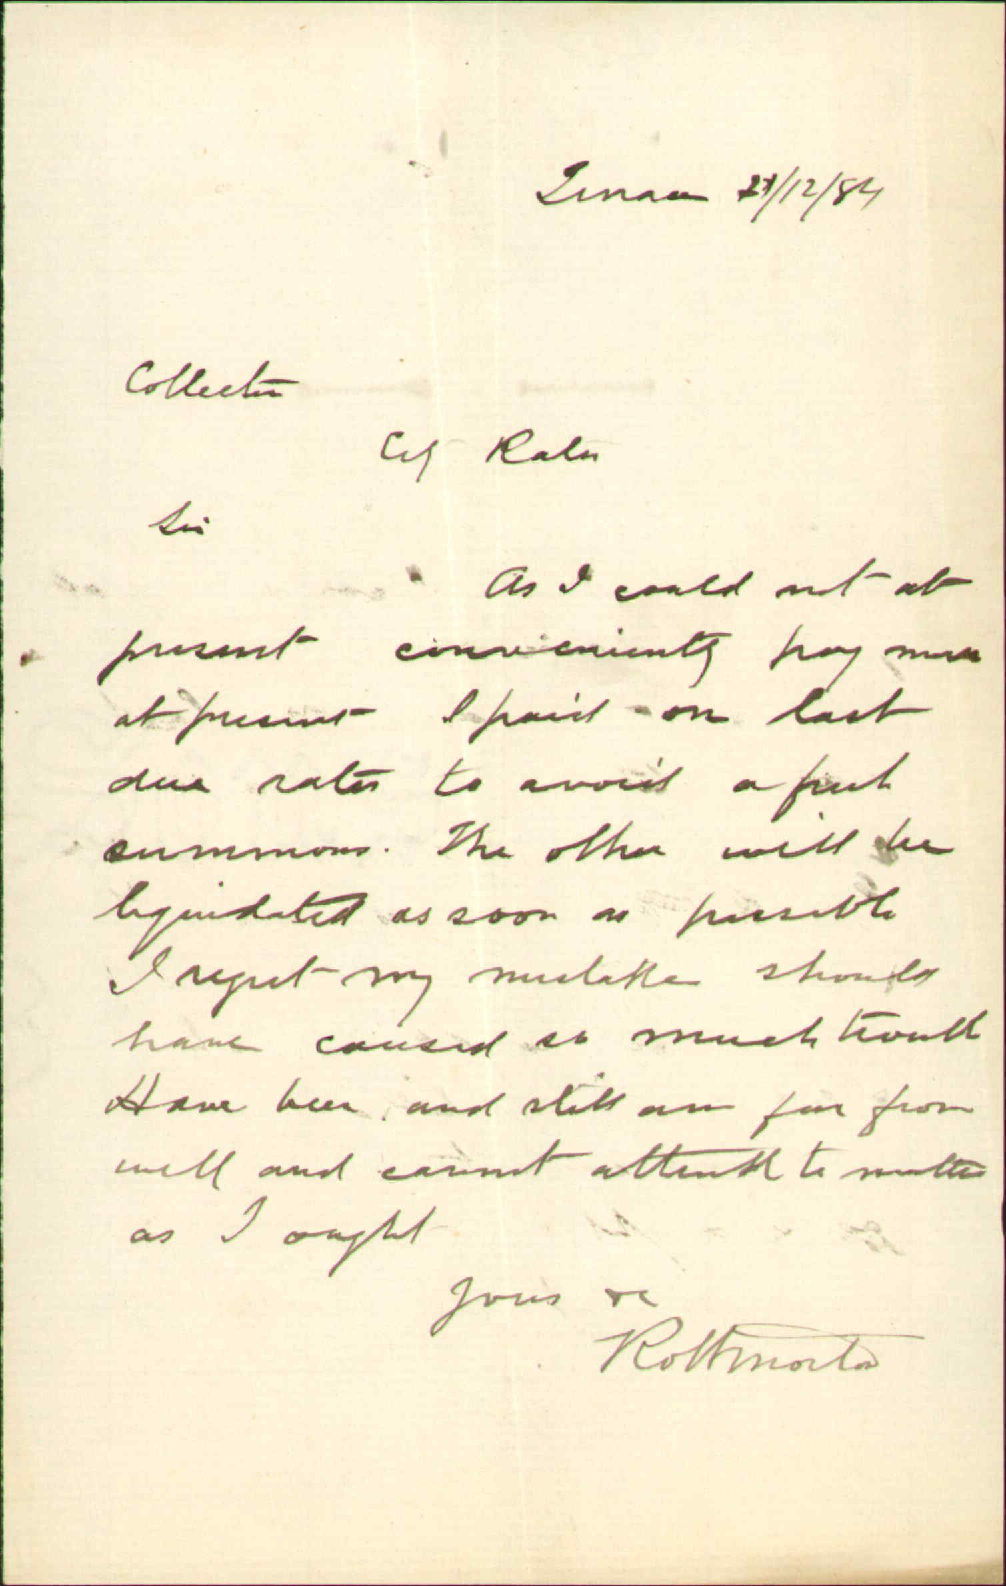 21/12/84
Collector
City Rates
Sir
As I could not at
present conveniently pay more
at present I paid on last
due rates to avoid a fresh
summons. The other will be
liquidated as soon as possible
I regret my mistake should
have caused so much trouble
Have been and still am far from
well and cannot attend to matters
as I ought
Yours &c